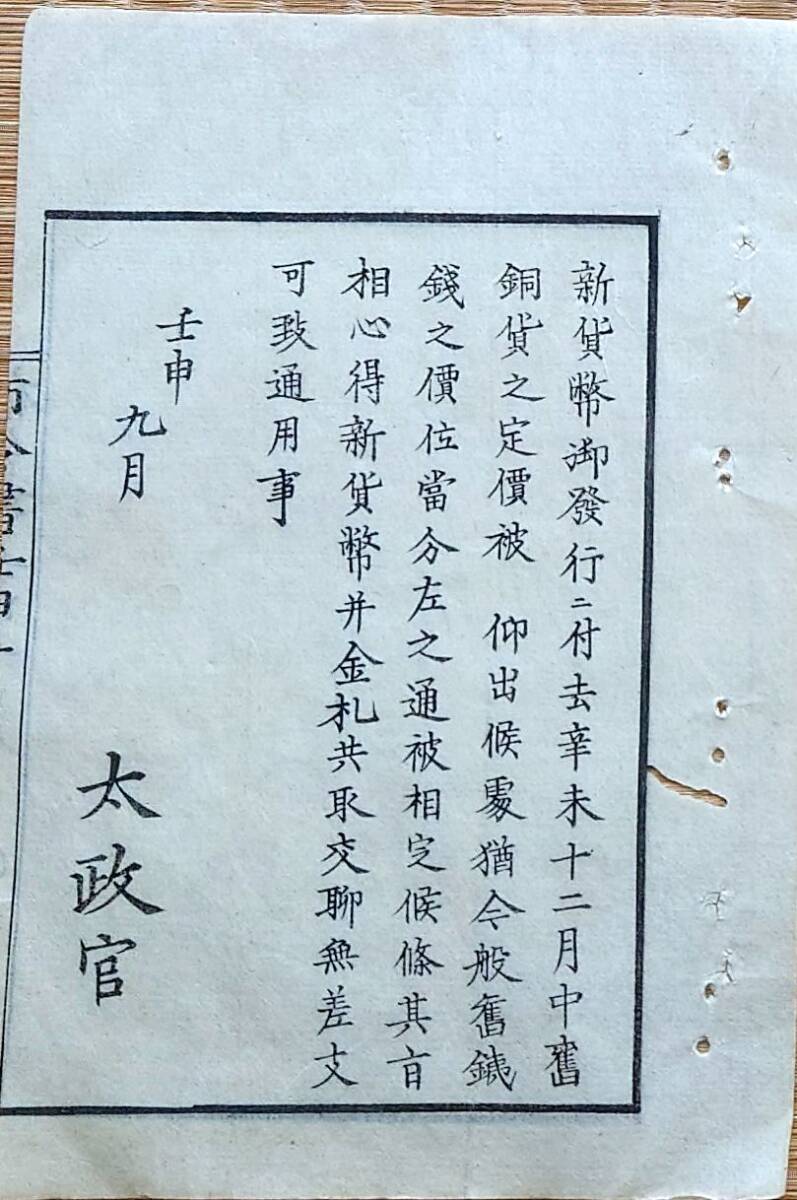 新貨幣御發行ニ付去辛未十二月中舊
銅貨之定價被　仰出候處猶今般舊銕
錢之價位當分左之通被相定候條其旨
相心得新貨幣并金札共取交聊無差支
可致通用事
壬申
九月
太政官